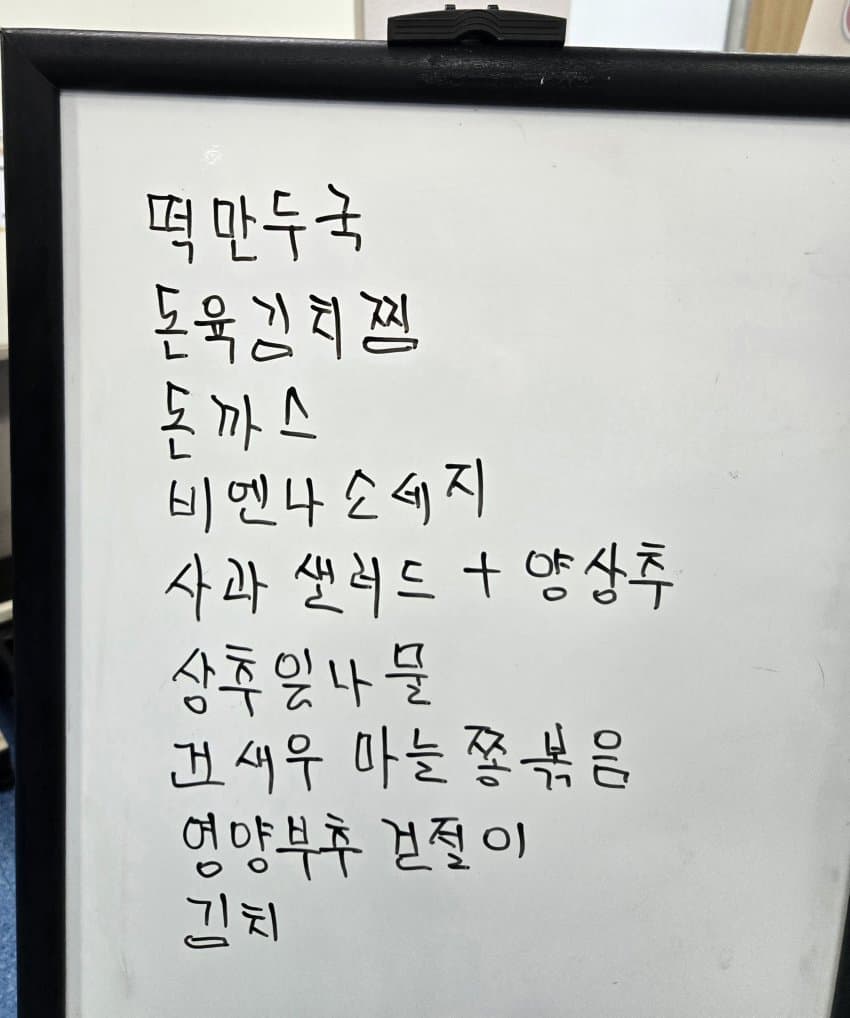 떡만두국
돈육김치찜
돈까스
비엔나소세지
사과 샐러드 + 양상추
상추잎나물
건새우 마늘쫑볶음
영양부추 겉절이
김치